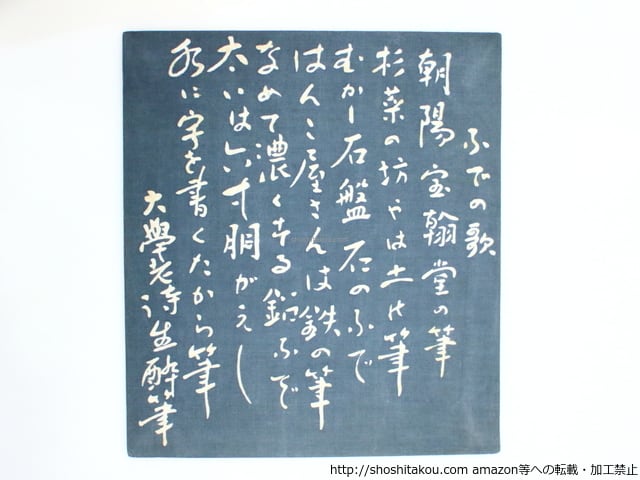 ふでの歌
朝陽宝翰堂の筆
杉菜の坊やは土の筆
むかし石盤石のふで
はんこ屋さんは鉄の筆
なめて濃くする鉛ふで
太いは六寸胴がえし
水に字を書くたから筆
大學老詩生酔筆
http://shoshitakou.com amazon等への転載・加工禁止